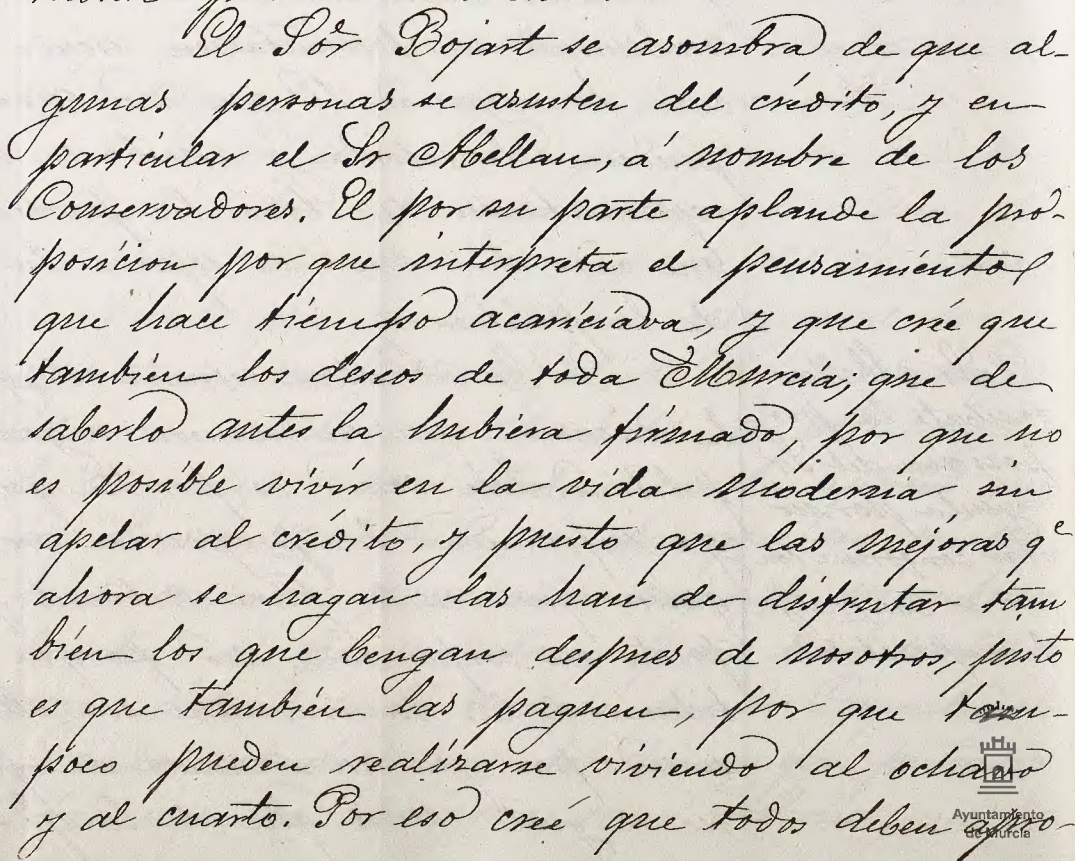 El Sor Bojart se asombra de que al-
gunas personas se asusten del crédito, y en
particular el Sr Abellan, á nombre de los
Conservadores. El por su parte aplaude la pro-
posicion por que interpreta el pensamiento
que hace tiempo acariciava, y que creé que
tambien los deseos de toda Murcia; que de
saberlo antes la hubiera firmado, por que no
es posible vivir en la vida moderna sin
apelar al crédito, y puesto que las mejoras qe
ahora se hagan las han de disfrutar tam
bién los que bengan despues de nosotros, justo
es que también las paguen, por que tam-
poco pueden realizarse viviendo al ochavo
y al cuarto. Por eso creé que todos deben apro-
Ayuntamiento
de Murcia